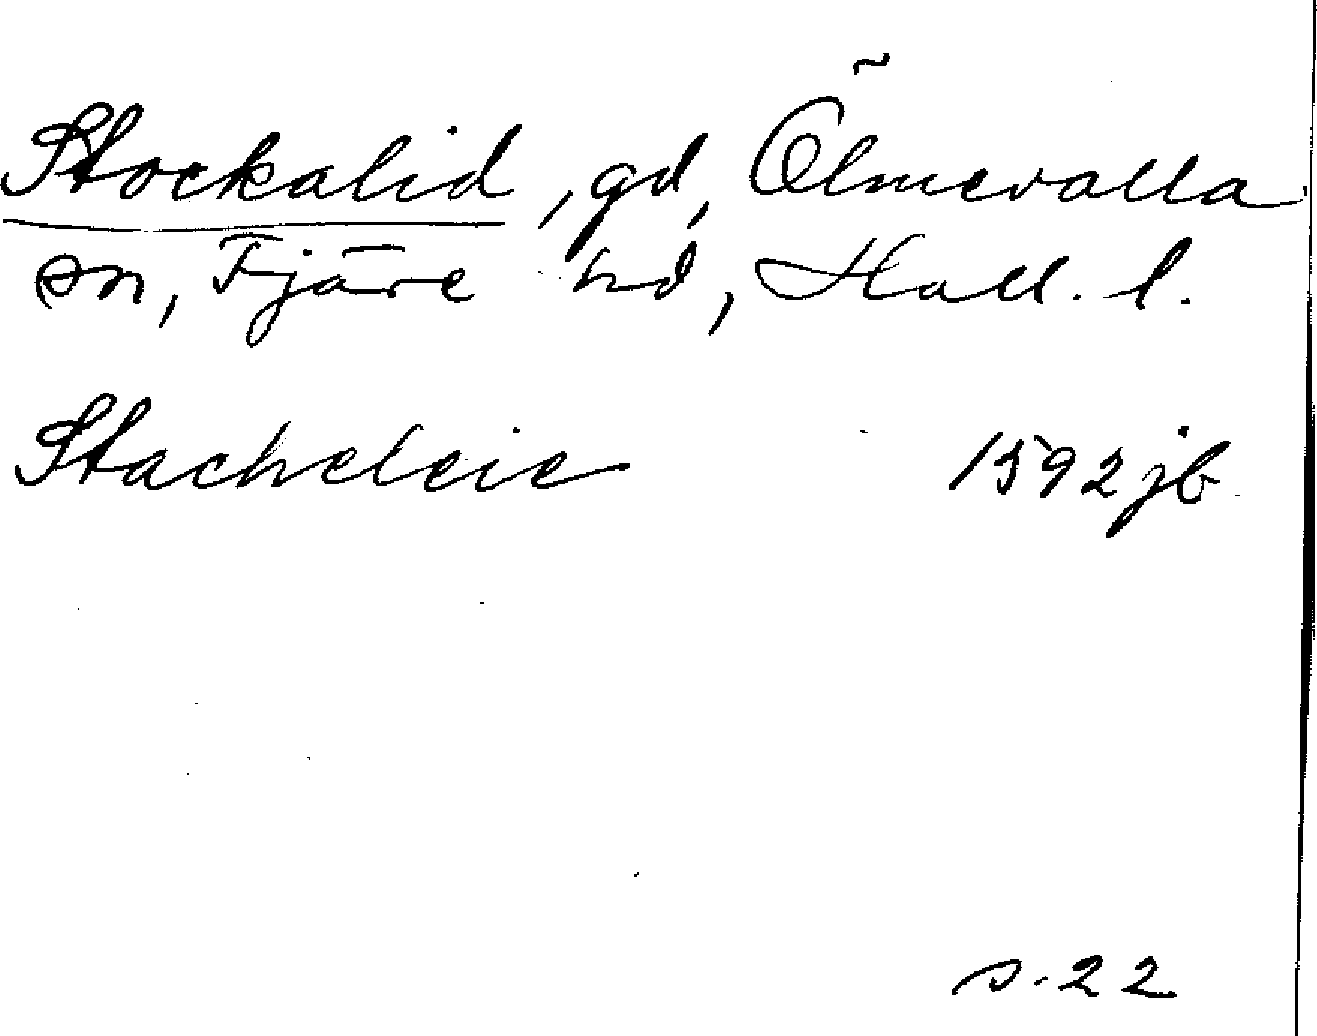 Stockalid, gd, Ölmevalla
sn, Fjäre hd, Hall. l.
Stacheleie 1592 jb
s. 22